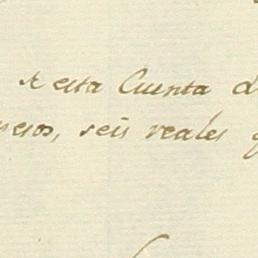 A esta Cuenta d
pesos, seis reales y